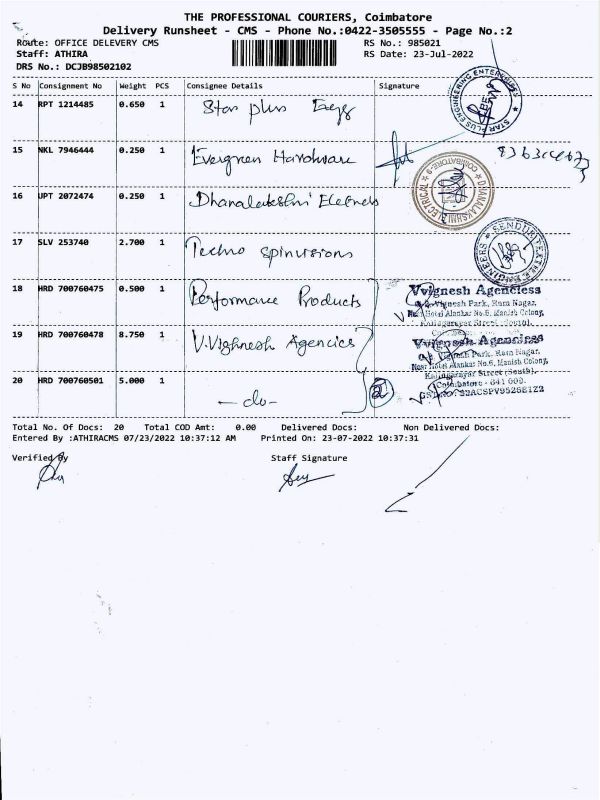 THE PROFESSIONAL COURIERS, Coimbatore
Delivery Runsheet - CMS - Phone No.:0422-3505555 - Page No.:2
Route: OFFICE DELEVERY CMS RS No.: 985021
Staff: ATHIRA RS Date: 23-Jul-2022
DRS No.: DCJB98502102
S No Consignment No Weight PCS Consignee Details Signature
14 RPT 1214485 0.650 1 Star plus Engg
STAR PLUS ENGINEERING ENTERPRISES
15 NKL 7946444 0.250 1 Evergreen Hardware
16 UPT 2072474 0.250 1 Dhanalakshmi Elecricals
DHANALAKSHMI ELECTRICAL COIMBATORE-9
17 SLV 253740 2.700 1 Techno spinvisions
18 HRD 700760475 0.500 1 Performance Products
Vvignesh Agencies
Vignesh Park, Ram Nagar,
Near Hotel Alankar No.6, Manish Colony,
Kalingarayar Street (South),
19 HRD 700760478 8.750 1 V.Vighnesh Agencies
Vvignesh Agencies
Vignesh Park, Ram Nagar,
Near Hotel Alankar No.6, Manish Colony,
Kalingarayar Street (South),
Coimbatore - 641 009.
20 HRD 700760501 5.000 1 — do — 2
Total No. Of Docs: 20 Total COD Amt: 0.00 Delivered Docs: Non Delivered Docs:
Entered By :ATHIRACMS 07/23/2022 10:37:12 AM Printed On: 23-07-2022 10:37:31
Verified By Staff Signature